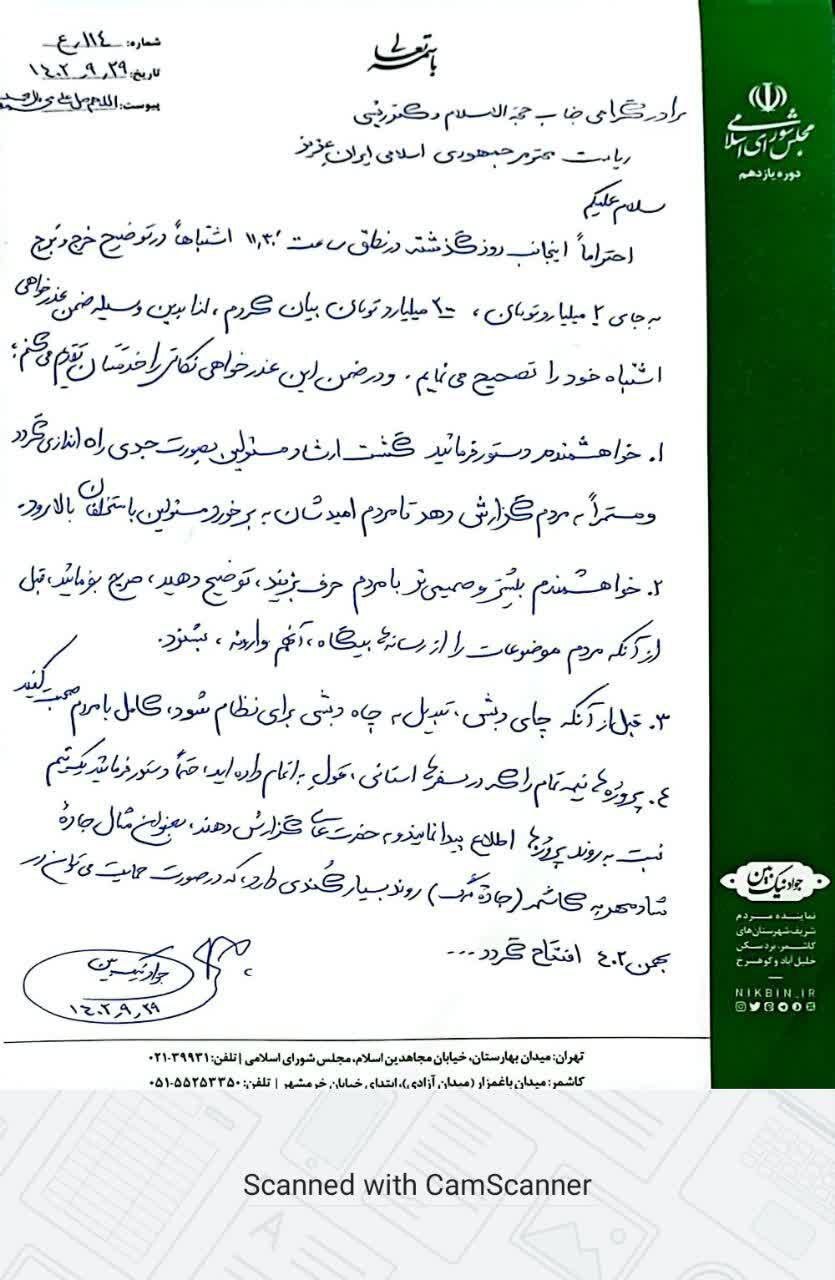 باسمه تعالی
شماره: ۱۱۴/ع
تاریخ: ۱۴۰۲/۹/۲۹
پیوست: اللهم صل علی
مجلس شورای اسلامی
دوره یازدهم
برادر گرامی جناب حجة الاسلام دکتر رئیسی
ریاست محترم جمهوری اسلامی ایران عزیز
سلام علیکم
احتراماً اینجانب روز گذشته در نطق ساعت ۱۱،۳۰ اشتباهاً در توضیح خرج و برج
به جای ۲ میلیارد تومان، ۲۰۰ میلیارد تومان بیان کردم، لذا بدین وسیله ضمن عذرخواهی
اشتباه خود را تصحیح می نمایم. و در ضمن این عذرخواهی نکاتی را خدمتتان تقدیم می کنم؛
۱. خواهشمندم دستور فرمائید گشت ارشاد مسئولین بصورت جدی راه اندازی گردد
و مستمراً به مردم گزارش دهد تا مردم امیدشان به برخورد مسئولین با متخلفان بالا رود.
۲. خواهشمندم بیشتر و صمیمی تر با مردم حرف بزنید، توضیح دهید، صریح بفرمائید، قبل
از آنکه مردم موضوعات را از رسانه ها بیگانه، آنهم وارونه، بشنوند.
۳. قبل از آنکه چای دبش، تبدیل به چاه دبشی برای نظام شود، کامل با مردم صحبت کنید
۴. پروژه ها نیمه تمام را که در سفرها استانی، قول به اتمام داده اید، حتماً دستور فرمائید یک تیم
نسبت به روند پروژه ها اطلاع پیدا نمایند و به حضرت عالی گزارش دهند، بعنوان مثال جادهٔ
شادمهر به کاشمر (جادهٔ مرگ) روند بسیار کُندی دارد، که در صورت حمایت می توان در
بهمن ۴۰۲ افتتاح گردد ...
جواد نیک بین
۱۴۰۲/۹/۲۹
جواد نیک بین
نماینده مردم
شریف شهرستان های
کاشمر، بردسکن
خلیل آباد و کوهسرخ
NIKBIN_IR
تهران: میدان بهارستان، خیابان مجاهدین اسلام، مجلس شورای اسلامی | تلفن: ۳۹۹۳۱-۰۲۱
کاشمر: میدان باغمزار (میدان آزادی)، ابتدای خیابان خرمشهر | تلفن: ۵۵۲۵۳۳۵۰-۰۵۱
Scanned with CamScanner